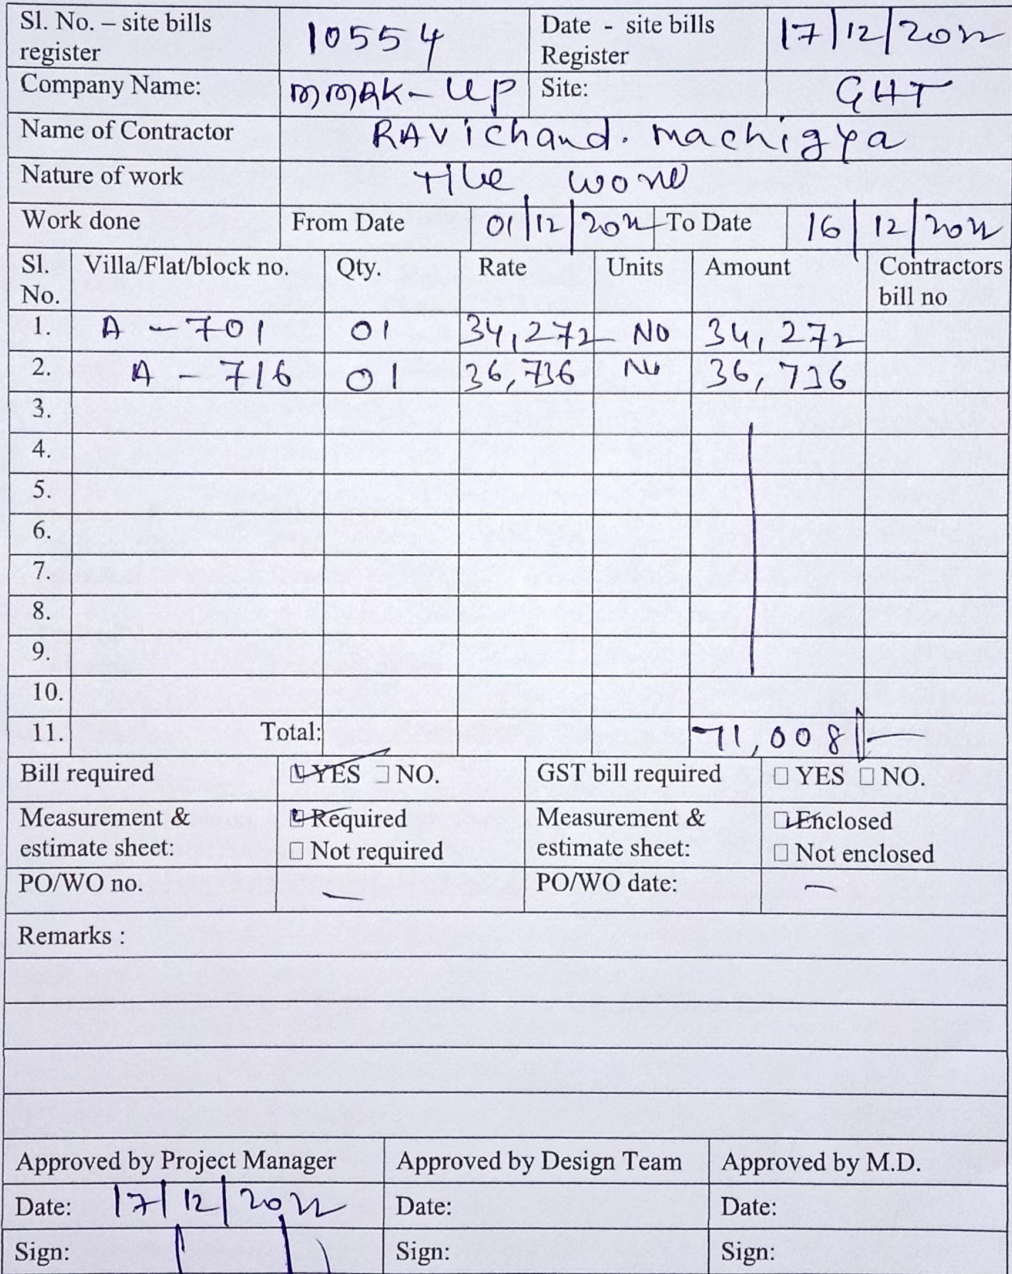 Sl. No. – site bills register 10554 Date - site bills Register 17/12/2022
Company Name: MMAK-UP Site: GHT
Name of Contractor RAVichand. machigya
Nature of work tile work
Work done From Date 01/12/2022 To Date 16/12/2022
Sl. No. Villa/Flat/block no. Qty. Rate Units Amount Contractors bill no
1. A - 701 01 34,272 No 34,272
2. A - 716 01 36,736 No 36,736
3.
4.
5.
6.
7.
8.
9.
10.
11. Total: 71,008/-
Bill required YES NO. GST bill required YES NO.
Measurement & estimate sheet: Required Not required Measurement & estimate sheet: Enclosed Not enclosed
PO/WO no. — PO/WO date: —
Remarks :
Approved by Project Manager Approved by Design Team Approved by M.D.
Date: 17/12/2022 Date: Date:
Sign: Sign: Sign: